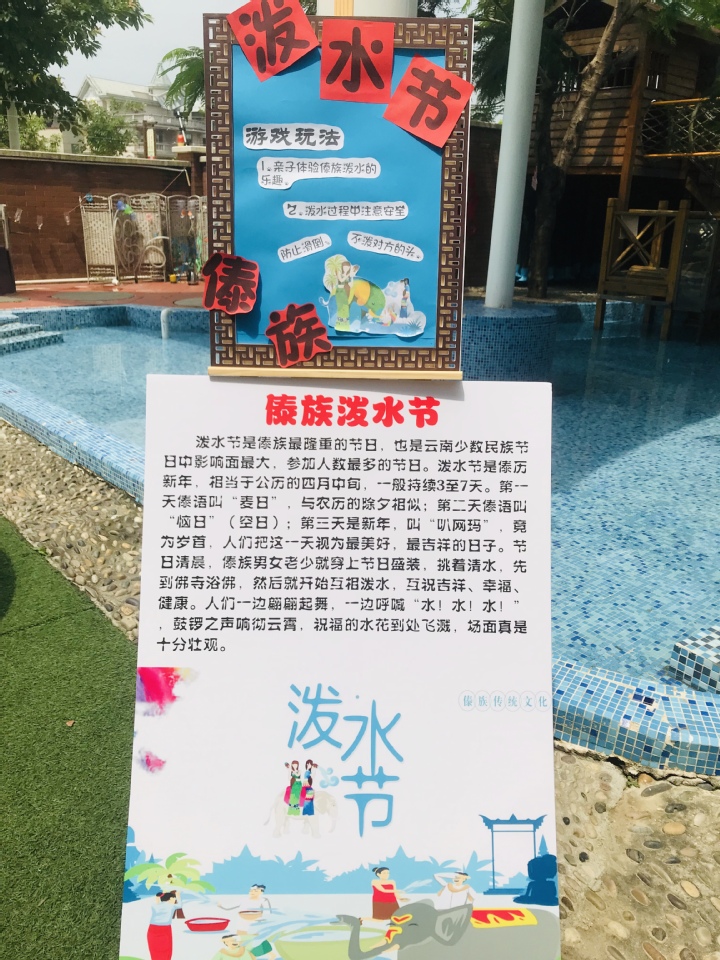 泼水节
游戏玩法
1。亲子体验傣族泼水的
乐趣。
2。泼水过程中注意安全
防止滑倒、 不泼对方的头。
傣族
傣族泼水节
泼水节是傣族最隆重的节日，也是云南少数民族节
日中影响面最大，参加人数最多的节日。泼水节是傣历
新年，相当于公历的四月中旬，一般持续3至7天。第一
天傣语叫“麦日”，与农历的除夕相似；第二天傣语叫
“恼日”（空日）；第三天是新年，叫“叭网玛”，竟
为岁首，人们把这一天视为最美好，最吉祥的日子。节
日清晨，傣族男女老少就穿上节日盛装，挑着清水，先
到佛寺浴佛，然后就开始互相泼水，互祝吉祥、幸福、
健康。人们一边翩翩起舞，一边呼喊“水！水！水！”
，鼓锣之声响彻云霄，祝福的水花到处飞溅，场面真是
十分壮观。
傣族传统文化
泼水节